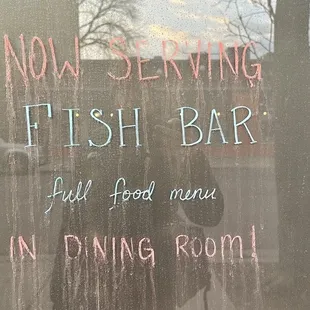 NOW SERVING
FISH BAR
full food menu
IN DINING ROOM!